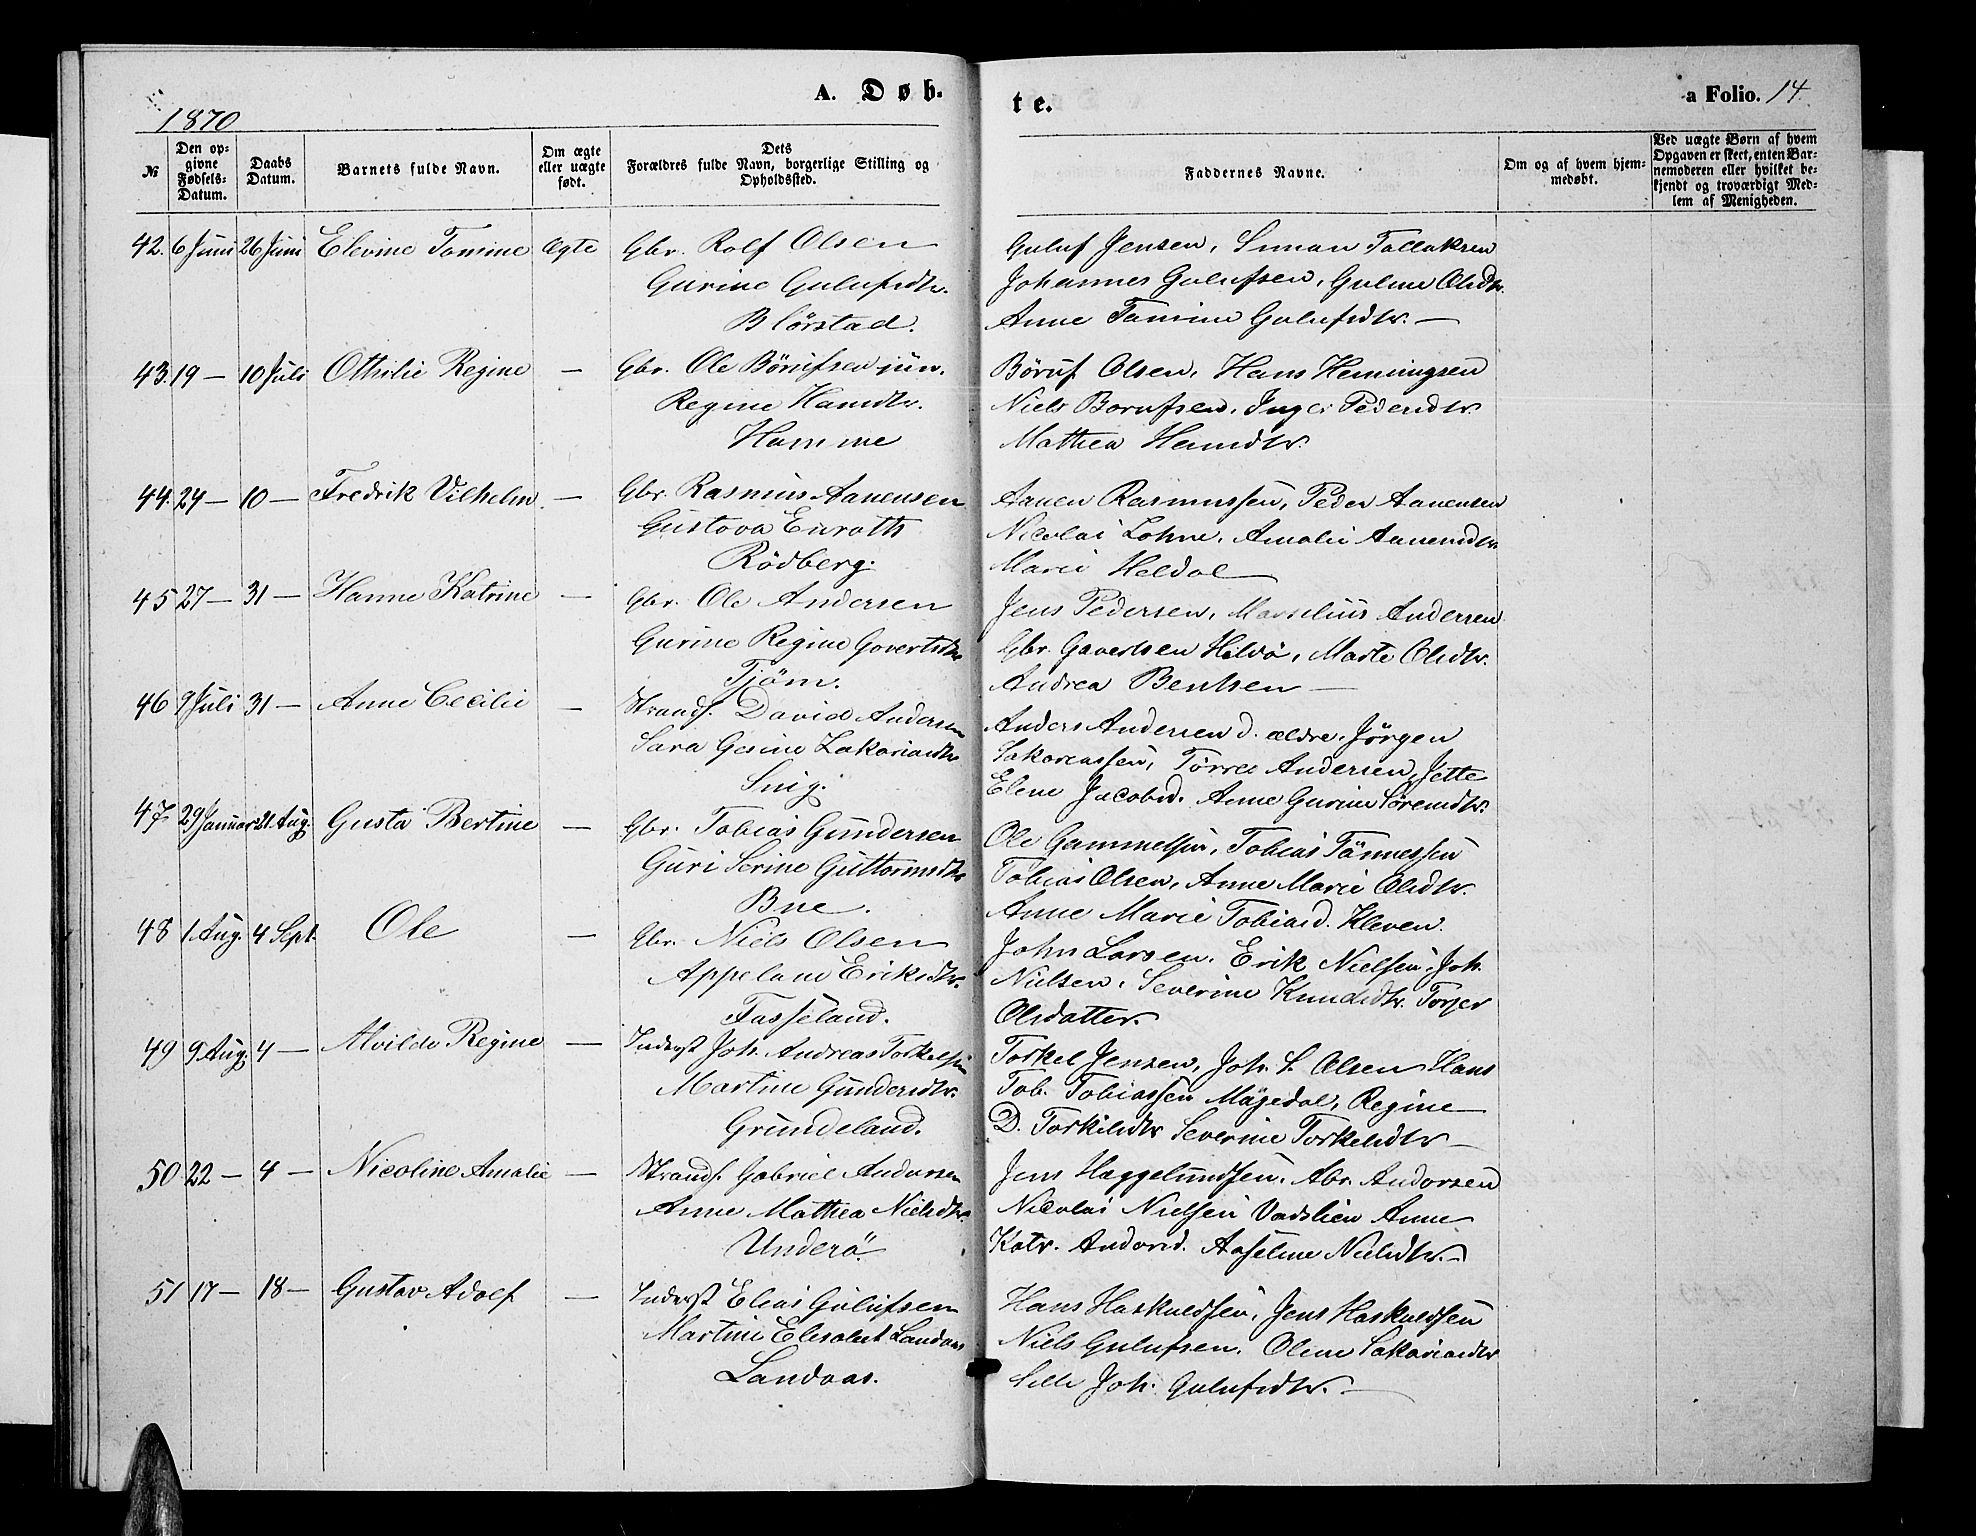 A. Døb-
te.
a Folio. 14.
1870
№
Den op-
givne
Fødsels-
Datum.
Daabs
Datum.
Barnets fulde Navn.
Om ægte
eller uægte
født.
Dets
Forældres fulde Navn, borgerlige Stilling og
Opholdssted.
Faddernes Navne.
Om og af hvem hjem-
medøbt.
Ved uægte Børn af hvem
Opgaven er skeet, enten Bar-
nemoderen eller hvilket be-
kjendt og troværdigt Med-
lem af Menigheden.
42. 6 Juni 26 Juni Elevine Tomine Ægte Gbr. Rolf Olsen
Gurine Gulufsdtr.
Blörstad.
Guluf Jensen, Simon Tallaksen
Johannes Gulufsen, Guline Olsdtr.
Anne Tomine Gulufsdtr. —
43. 19 — 10 Juli Othilie Regine — Gbr. Ole Börufsen jün.
Regine Hansdtr.
Hamme
Böruf Olsen, Hans Hemingsen
Niels Borufsen, Inger Pedersdtr.
Mathea Hansdtr.
44. 24 — 10 — Fredrik Vilhelm. — Gbr. Rasmus Aanensen
Gustava Enroth
Rödberg.
Aanen Rasmussen, Peder Aanensen
Nicolai Lohne, Amalie Aanensdtr
Marie Heldal —
45 27 — 31 — Hanne Katrine — Gbr. Ole Andersen
Gurine Regine Govertsdtr
Tjöm.
Jens Pedersen, Marselius Andersen
Gbr. Gavertsen Hilvö, Marte Olsdtr.
Andrea Bentsen —
46 9 Juli 31 — Anne Cecilie — Strands. David Andersen
Sara Gesine Zakariasdtr
Snig.
Anders Andersen d. ældre, Jörgen
Sakariassen, Törres Andersen, Jette
Elene Jacobsd. Anne Gurine Sörensdtr.
47 29 Januar 21. Aug. Gusta Bertine — Gbr. Tobias Gundersen
Guri Serine Guttormsdtr
Bue.
Ole Gammelsen, Tobias Tönnessen
Tobias Olsen, Anne Marie Olsdtr.
Anne Marie Tobiasd. Kleven.
48 1 Aug. 4 Sept. Ole — Gbr. Niels Olsen
Appelane Eriksdtr.
Fasseland.
John Larsen, Erik Nielsen, Joh.
Nielsen, Severine Knudsdtr. Torjer
Olsdatter.
49 9 Aug. 4 — Alvilde Regine — Inderst Joh. Andreas Torkelsen
Martine Gundersdtr.
Grundeland.
Torkel Jensen, Joh. L. Olsen Hans
Tob. Tobiassen Møgedal, Regine
D. Torkilsdtr Severine Torkelsdtr —
50 22 — 4 — Nicoline Amalie — Strands. Gabriel Andersen
Anne Mathea Nielsdtr.
Underö
Jens Haggelundsen, Abr. Andorsen
Nicolai Nielsen Vadslien Anne
Katr. Andorsd. Aaseline Nielsdtr. —
51 17 — 18 — Gustav Adolf — Inderst Elias Gulufsen
Martine Elisabet Landaas
Landaas.
Hans Haskuldsen, Jens Haskuldsen
Niels Gulufsen. Oline Sakariasdtr
Sille Joh. Gulufsdtr. —